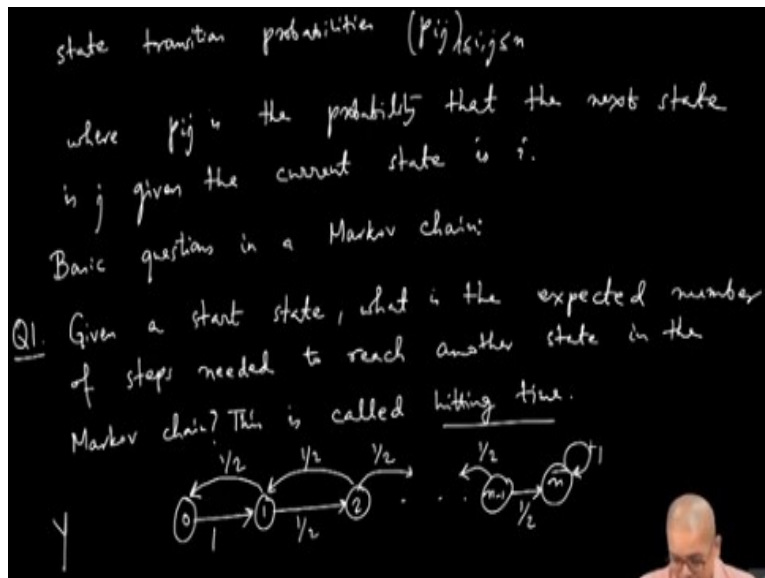 state transition probabilities (Pij)1≤i,j≤n
where Pij is the probability that the next state
is j given the current state is i.
Basic questions in a Markov chain:
Q1. Given a start state, what is the expected number
of steps needed to reach another state in the
Markov chain? This is called hitting time.
1/2 1/2 1/2 1/2 1
0 1 2 . . . n-1 n
1 1/2 1/2
Y